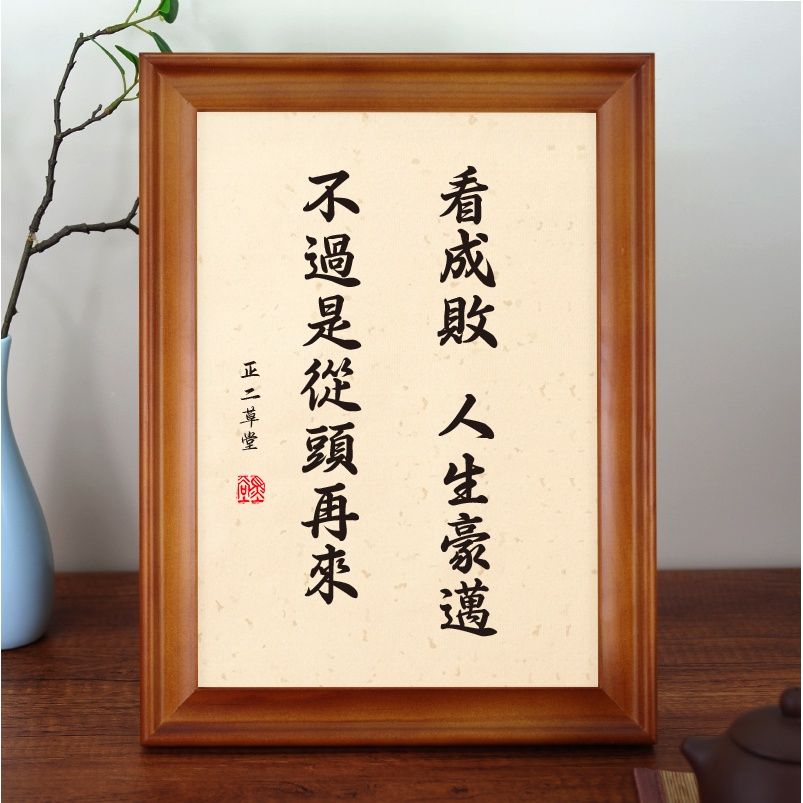 看成敗 人生豪邁
不過是從頭再來
正二草堂